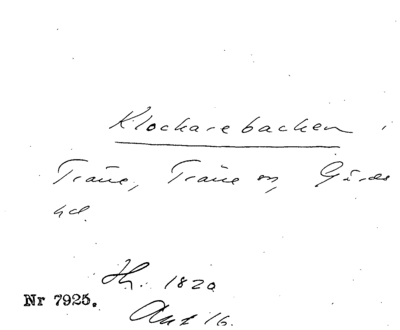 Klockarebacken i
Träne, Träne sn, Gärds
hd.
Hj. 1820
Nr 7925.
Akt 16.